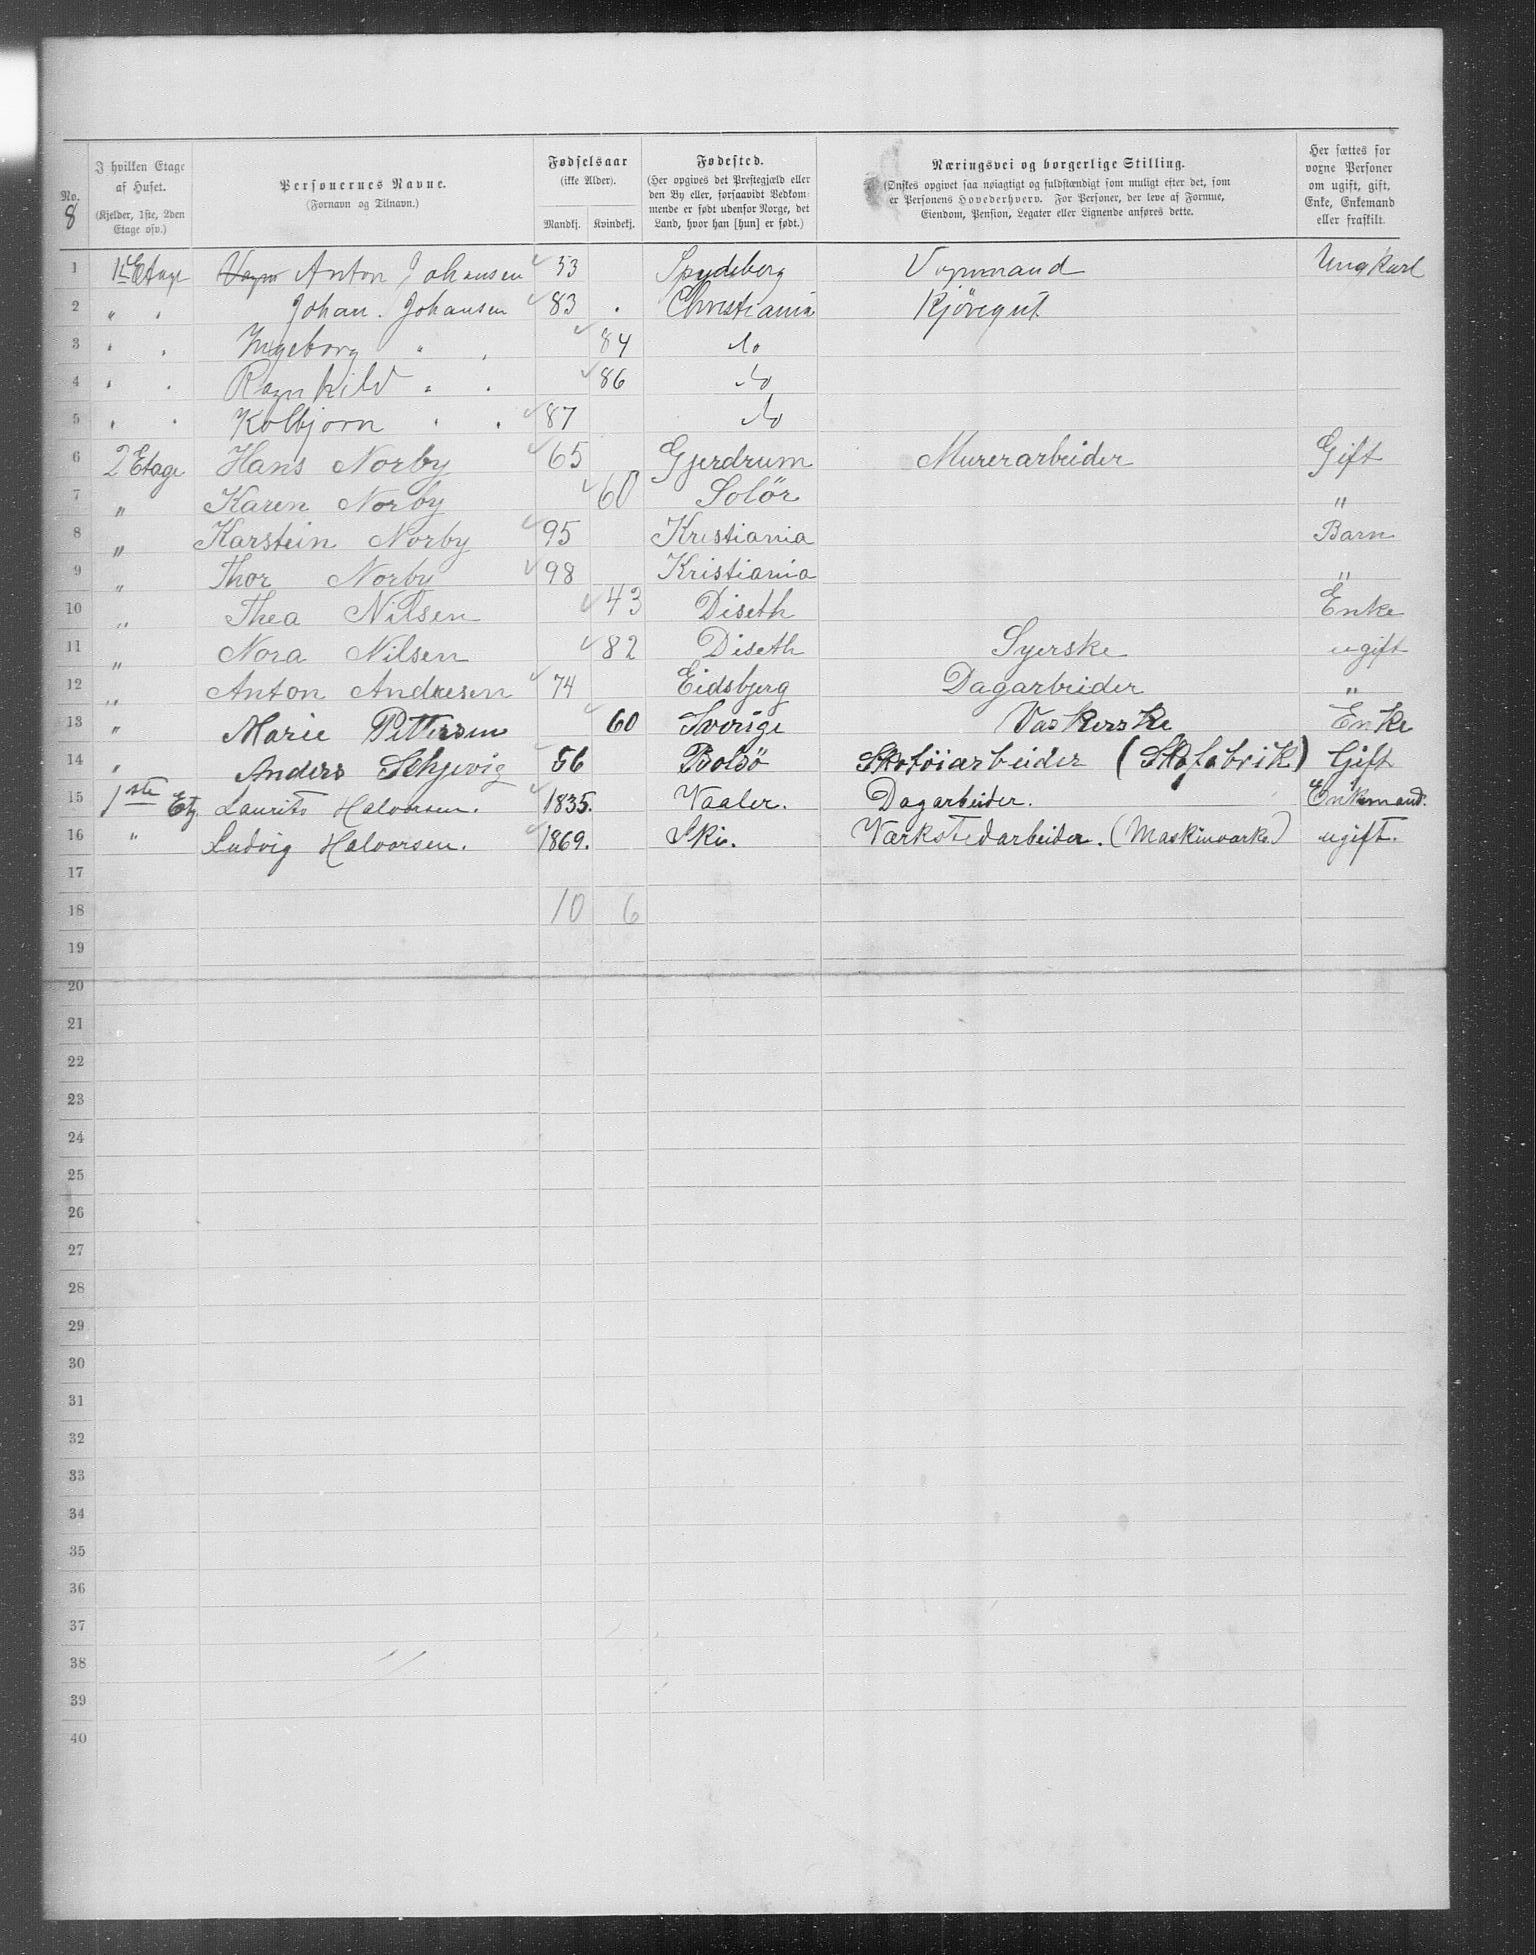 No.
8
I hvilken Etage af Huset.
(Kjelder, 1ste, 2den Etage osv.)
Personernes Navne.
(Fornavn og Tilnavn.)
Fødselsaar
(ikke Alder).
Mandkj. Kvindekj.
Fødested.
(Her opgives det Prestegjæld eller den By eller, forsaavidt Vedkommende er født udenfor Norge, det Land, hvor han [hun] er født.)
Næringsvei og borgerlige Stilling.
(Ønskes opgivet saa nøiagtigt og fuldstændigt som muligt efter det, som er Personens Hovederhverv. For Personer, der leve af Formue, Eiendom, Pension, Legater eller Lignende anføres dette.
Her sættes for voxne Personer om ugift, gift, Enke, Enkemand eller fraskilt.
1 1ste Etage Vogn Anton Johansen 53 Spydeberg Vognmand Ungkarl
2 " " Johan. Johansen 83 Christiania Kjöregut
3 " " Ingeborg " " 84 do
4 " " Ragnhild " " 86 do
5 " " Kolbjorn " " 87 do
6 2 Etage Hans Norby 65 Gjerdrum Murerarbeider Gift
7 " Karen Norby 60 Solör "
8 " Karstein Norby 95 Kristiania Barn
9 " Thor Norby 98 Kristiania "
10 " Thea Nilsen 43 Diseth Enke
11 " Nora Nilsen 82 Diseth Syerske ugift
12 " Anton Andresen 74 Eidsbjerg Dagarbeider "
13 " Marie Pettersen 60 Sverige Vaskerske Enke
14 " Anders Schjevig 56 Bolsö Skotöiarbeider (Skofabrik) Gift
15 1ste Etg. Laurits Halvorsen. 1835. Vaaler. Dagarbeider. Enkemand.
16 " Ludvig Halvorsen. 1869. Ski. Værkstedarbeider. (Maskinværks.) ugift.
17
18 10 6
19
20
21
22
23
24
25
26
27
28
29
30
31
32
33
34
35
36
37
38
39
40